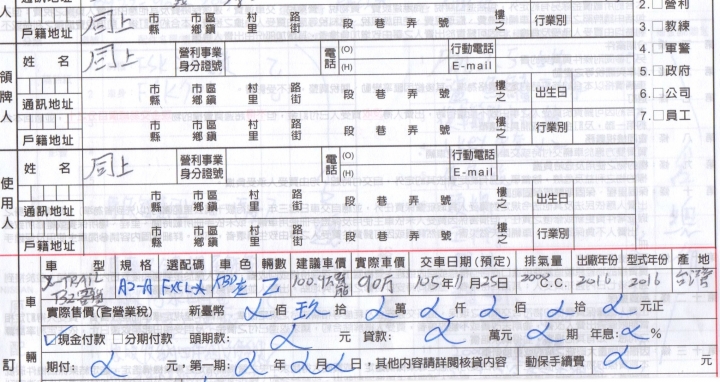 人 通訊地址
戶籍地址 同上 市縣 市區鄉鎮 村里 路街 段 巷 弄 號 樓之 行業別
2.□營利
3.□教練
4.□軍警
5.□政府
6.□公司
7.□員工
領牌人
姓 名 同上 營利事業身分證號 電話 (O) (H) 行動電話 E-mail
通訊地址 市縣 市區鄉鎮 村里 路街 段 巷 弄 號 樓之 出生日
戶籍地址 市縣 市區鄉鎮 村里 路街 段 巷 弄 號 樓之 行業別
使用人
姓 名 同上 營利事業身分證號 電話 (O) (H) 行動電話 E-mail
通訊地址 市縣 市區鄉鎮 村里 路街 段 巷 弄 號 樓之 出生日
戶籍地址 市縣 市區鄉鎮 村里 路街 段 巷 弄 號 樓之 行業別
車 型 規 格 選配碼 車 色 輛數 建議車價 實際車價 交車日期(預定) 排氣量 出廠年份 型式年份 產 地
X-TRAIL A2-A 乙 100.9萬 90万 105年11月25日 2000C.C. 2016 2016 台灣
T32
車 輛
實際售價(含營業稅) 新臺幣 佰 玖 拾 萬 仟 佰 拾 元正
☑現金付款 □分期付款 頭期款: 元 貸款: 萬元 期 年息: %
訂
期付: 元,第一期: 年 月 日,其他內容請詳閱核貸內容 動保手續費 元